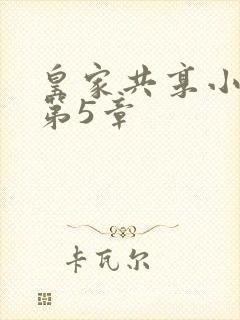 皇家共享小
第5章
卡瓦尔